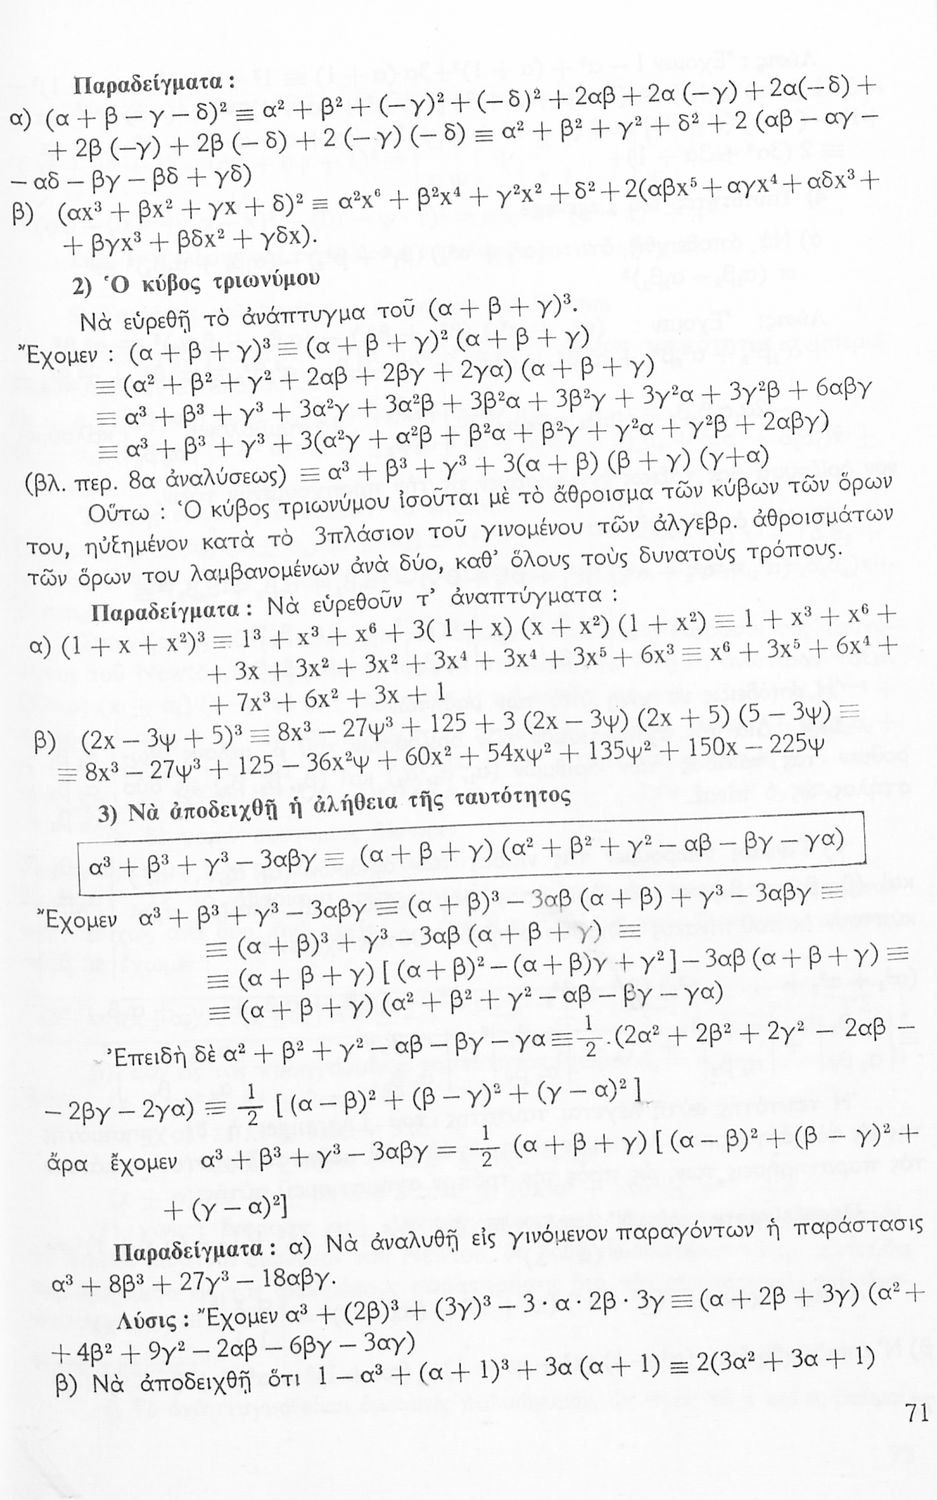 Παραδείγματα :
α) (α + β — γ — δ)² ≡ α² + β² + (—γ)² + (— δ)² + 2αβ + 2α (—γ) + 2α(—δ) +
+ 2β (—γ) + 2β (— δ) + 2 (— γ) (— δ) ≡ α² + β² + γ² + δ² + 2 (αβ — αγ —
— αδ — βγ — βδ + γδ)
β) (αx³ + βx² + γx + δ)² ≡ α²x⁶ + β²x⁴ + γ²x² + δ² + 2(αβx⁵ + αγx⁴ + αδx³ +
+ βγx³ + βδx² + γδx).
2) Ὁ κύβος τριωνύμου
Νὰ εὑρεθῇ τὸ ἀνάπτυγμα τοῦ (α + β + γ)³.
Ἔχομεν : (α + β + γ)³ ≡ (α + β + γ)² (α + β + γ)
≡ (α² + β² + γ² + 2αβ + 2βγ + 2γα) (α + β + γ)
≡ α³ + β³ + γ³ + 3α²γ + 3α²β + 3β²α + 3β²γ + 3γ²α + 3γ²β + 6αβγ
≡ α³ + β³ + γ³ + 3(α²γ + α²β + β²α + β²γ + γ²α + γ²β + 2αβγ)
(βλ. περ. 8α ἀναλύσεως) ≡ α³ + β³ + γ³ + 3(α + β) (β + γ) (γ+α)
Οὕτω : Ὁ κύβος τριωνύμου ἰσοῦται μὲ τὸ ἄθροισμα τῶν κύβων τῶν ὅρων
του, ηὐξημένον κατὰ τὸ 3πλάσιον τοῦ γινομένου τῶν ἀλγεβρ. ἀθροισμάτων
τῶν ὅρων του λαμβανομένων ἀνὰ δύο, καθ' ὅλους τοὺς δυνατοὺς τρόπους.
Παραδείγματα : Νὰ εὑρεθοῦν τ' ἀναπτύγματα :
α) (1 + x + x²)³ ≡ 1³ + x³ + x⁶ + 3( 1 + x) (x + x²) (1 + x²) ≡ 1 + x³ + x⁶ +
+ 3x + 3x² + 3x² + 3x⁴ + 3x⁴ + 3x⁵ + 6x³ ≡ x⁶ + 3x⁵ + 6x⁴ +
+ 7x³ + 6x² + 3x + 1
β) (2x — 3ψ + 5)³ ≡ 8x³ — 27ψ³ + 125 + 3 (2x — 3ψ) (2x + 5) (5 — 3ψ) ≡
≡ 8x³ — 27ψ³ + 125 — 36x²ψ + 60x² + 54xψ² + 135ψ² + 150x — 225ψ
3) Νὰ ἀποδειχθῇ ἡ ἀλήθεια τῆς ταυτότητος
α³ + β³ + γ³ — 3αβγ ≡ (α + β + γ) (α² + β² + γ² — αβ — βγ — γα)
Ἔχομεν α³ + β³ + γ³ — 3αβγ ≡ (α + β)³ — 3αβ (α + β) + γ³ — 3αβγ ≡
≡ (α + β)³ + γ³ — 3αβ (α + β + γ) ≡
≡ (α + β + γ) [ (α + β)² — (α + β)γ + γ² ] — 3αβ (α + β + γ) ≡
≡ (α + β + γ) (α² + β² + γ² — αβ — βγ — γα)
Ἐπειδὴ δὲ α² + β² + γ² — αβ — βγ — γα ≡ 1/2 .(2α² + 2β² + 2γ² — 2αβ —
— 2βγ — 2γα) ≡ 1/2 [ (α — β)² + (β — γ)² + (γ — α)² ]
ἄρα ἔχομεν α³ + β³ + γ³ — 3αβγ = 1/2 (α + β + γ) [ (α — β)² + (β — γ)² +
+ (γ — α)²]
Παραδείγματα : α) Νὰ ἀναλυθῇ εἰς γινόμενον παραγόντων ἡ παράστασις
α³ + 8β³ + 27γ³ — 18αβγ.
Λύσις : Ἔχομεν α³ + (2β)³ + (3γ)³ — 3 · α · 2β · 3γ ≡ (α + 2β + 3γ) (α² +
+ 4β² + 9γ² — 2αβ — 6βγ — 3αγ)
β) Νὰ ἀποδειχθῇ ὅτι 1 — α³ + (α + 1)³ + 3α (α + 1) ≡ 2(3α² + 3α + 1)
71